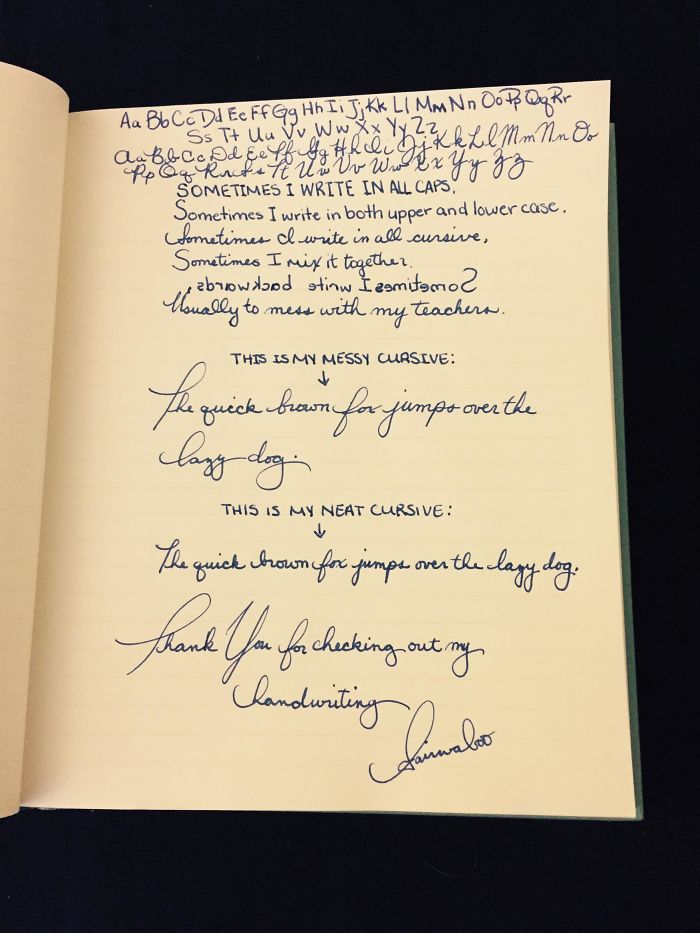 Aa Bb Cc Dd Ee Ff Gg Hh Ii Jj Kk Ll Mm Nn Oo Pp Qq Rr
Ss Tt Uu Vv Ww Xx Yy Zz
Aa Bb Cc Dd Ee Ff Gg Hh Ii Jj Kk Ll Mm Nn Oo
Pp Qq Rr Ss Tt Uu Vv Ww Xx Yy Zz
SOMETIMES I WRITE IN ALL CAPS.
Sometimes I write in both upper and lower case.
Sometimes I write in all cursive,
Sometimes I mix it together.
Sometimes I write backwards,
Usually to mess with my teachers.
THIS IS MY MESSY CURSIVE:
↓
The quick brown fox jumps over the
lazy dog.
THIS IS MY NEAT CURSIVE:
↓
The quick brown fox jumps over the lazy dog.
Thank You for checking out my
handwriting